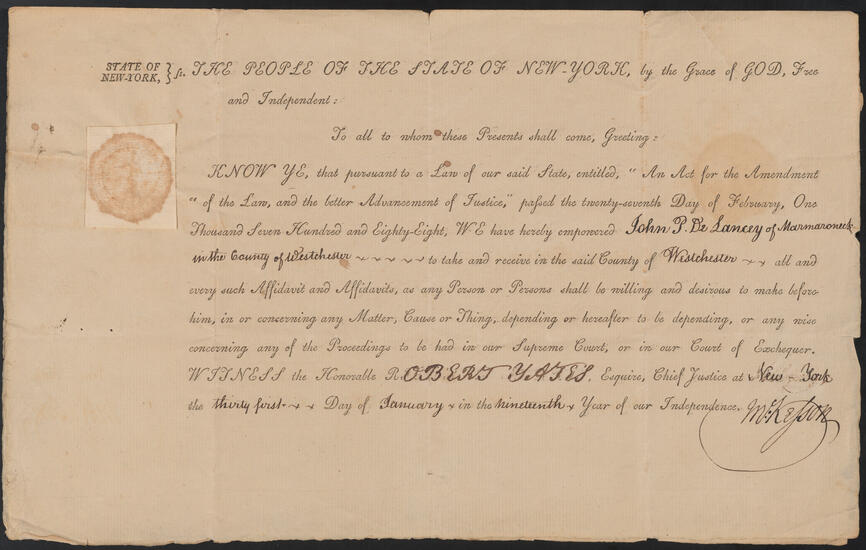 STATE OF
NEW-YORK, } ss. THE PEOPLE OF THE STATE OF NEW-YORK, by the Grace of GOD, Free
and Independent:
To all to whom these Presents shall come, Greeting:
KNOW YE, that pursuant to a Law of our said State, entitled, “ An Act for the Amendment
“ of the Law, and the better Advancement of Justice,” passed the twenty-seventh Day of February, One
Thousand Seven Hundred and Eighty-Eight, WE have hereby empowered John P. De Lancey of Marmaroneck
in the County of Westchester to take and receive in the said County of Westchester all and
every such Affidavit and Affidavits, as any Person or Persons shall be willing and desirous to make before
him, in or concerning any Matter, Cause or Thing, depending or hereafter to be depending, or any wise
concerning any of the Proceedings to be had in our Supreme Court, or in our Court of Exchequer.
WITNESS the Honorable ROBERT YATES, Esquire, Chief Justice at New-York
the thirty first Day of January in the nineteenth Year of our Independence.
McKesson